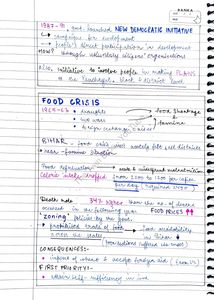 RANKA
1987-91 → govt. launched NEW DEMOCRATIC INITIATIVE
↳ campaigns for development
↳ people's direct participation in development
HOW? through voluntary citizens' organisations
Also, initiative to involve people in making PLANS
at the Panchayat, block & district level
FOOD CRISIS
1965-67 • droughts
• two wars
• foreign exchange crisis
food shortage &
famine
BIHAR - food crisis most acutely felt, all districts
• near-famine situation
Food deprivation → acute & widespread malnutrition
Calorie intake dropped from 2200 to 1200 per capita
per day (required 2450)
Death rate 34% higher than the no. of deaths
occurred in the following year. FOOD PRICES ↑↑
'zoning' policies of the govt.
• prohibited trade of food
across the states
food availability
in Bihar ↓
CONSEQUENCES:-
• import of wheat & accept foreign aid
FIRST PRIORITY:-
• attain self-sufficiency in food